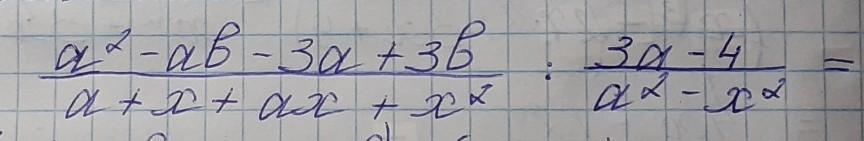 a² - ab - 3a + 3b / a + x + ax + x² : 3a - 4 / a² - x² =